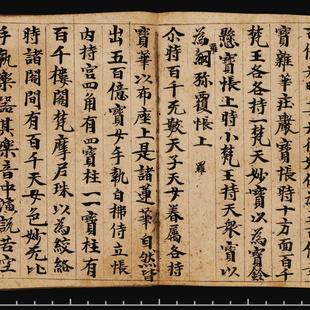 寶雜華莊嚴寶帳時十方面百千
梵王各各持一梵天妙寶以為寶鈴
懸寶帳上時小梵王持天衆寶以
為羅網弥覆帳上 羅
尒時百千无數天子天女眷属各持
寶華以布座上是諸蓮華自然皆
出五百億寶女手執白拂侍立帳
内持宮四角有四寶柱一一寶柱有
百千樓閣梵摩尼珠以為絞絡
時諸閣間有百千天女色妙无比
手執樂器其樂音中演説苦空